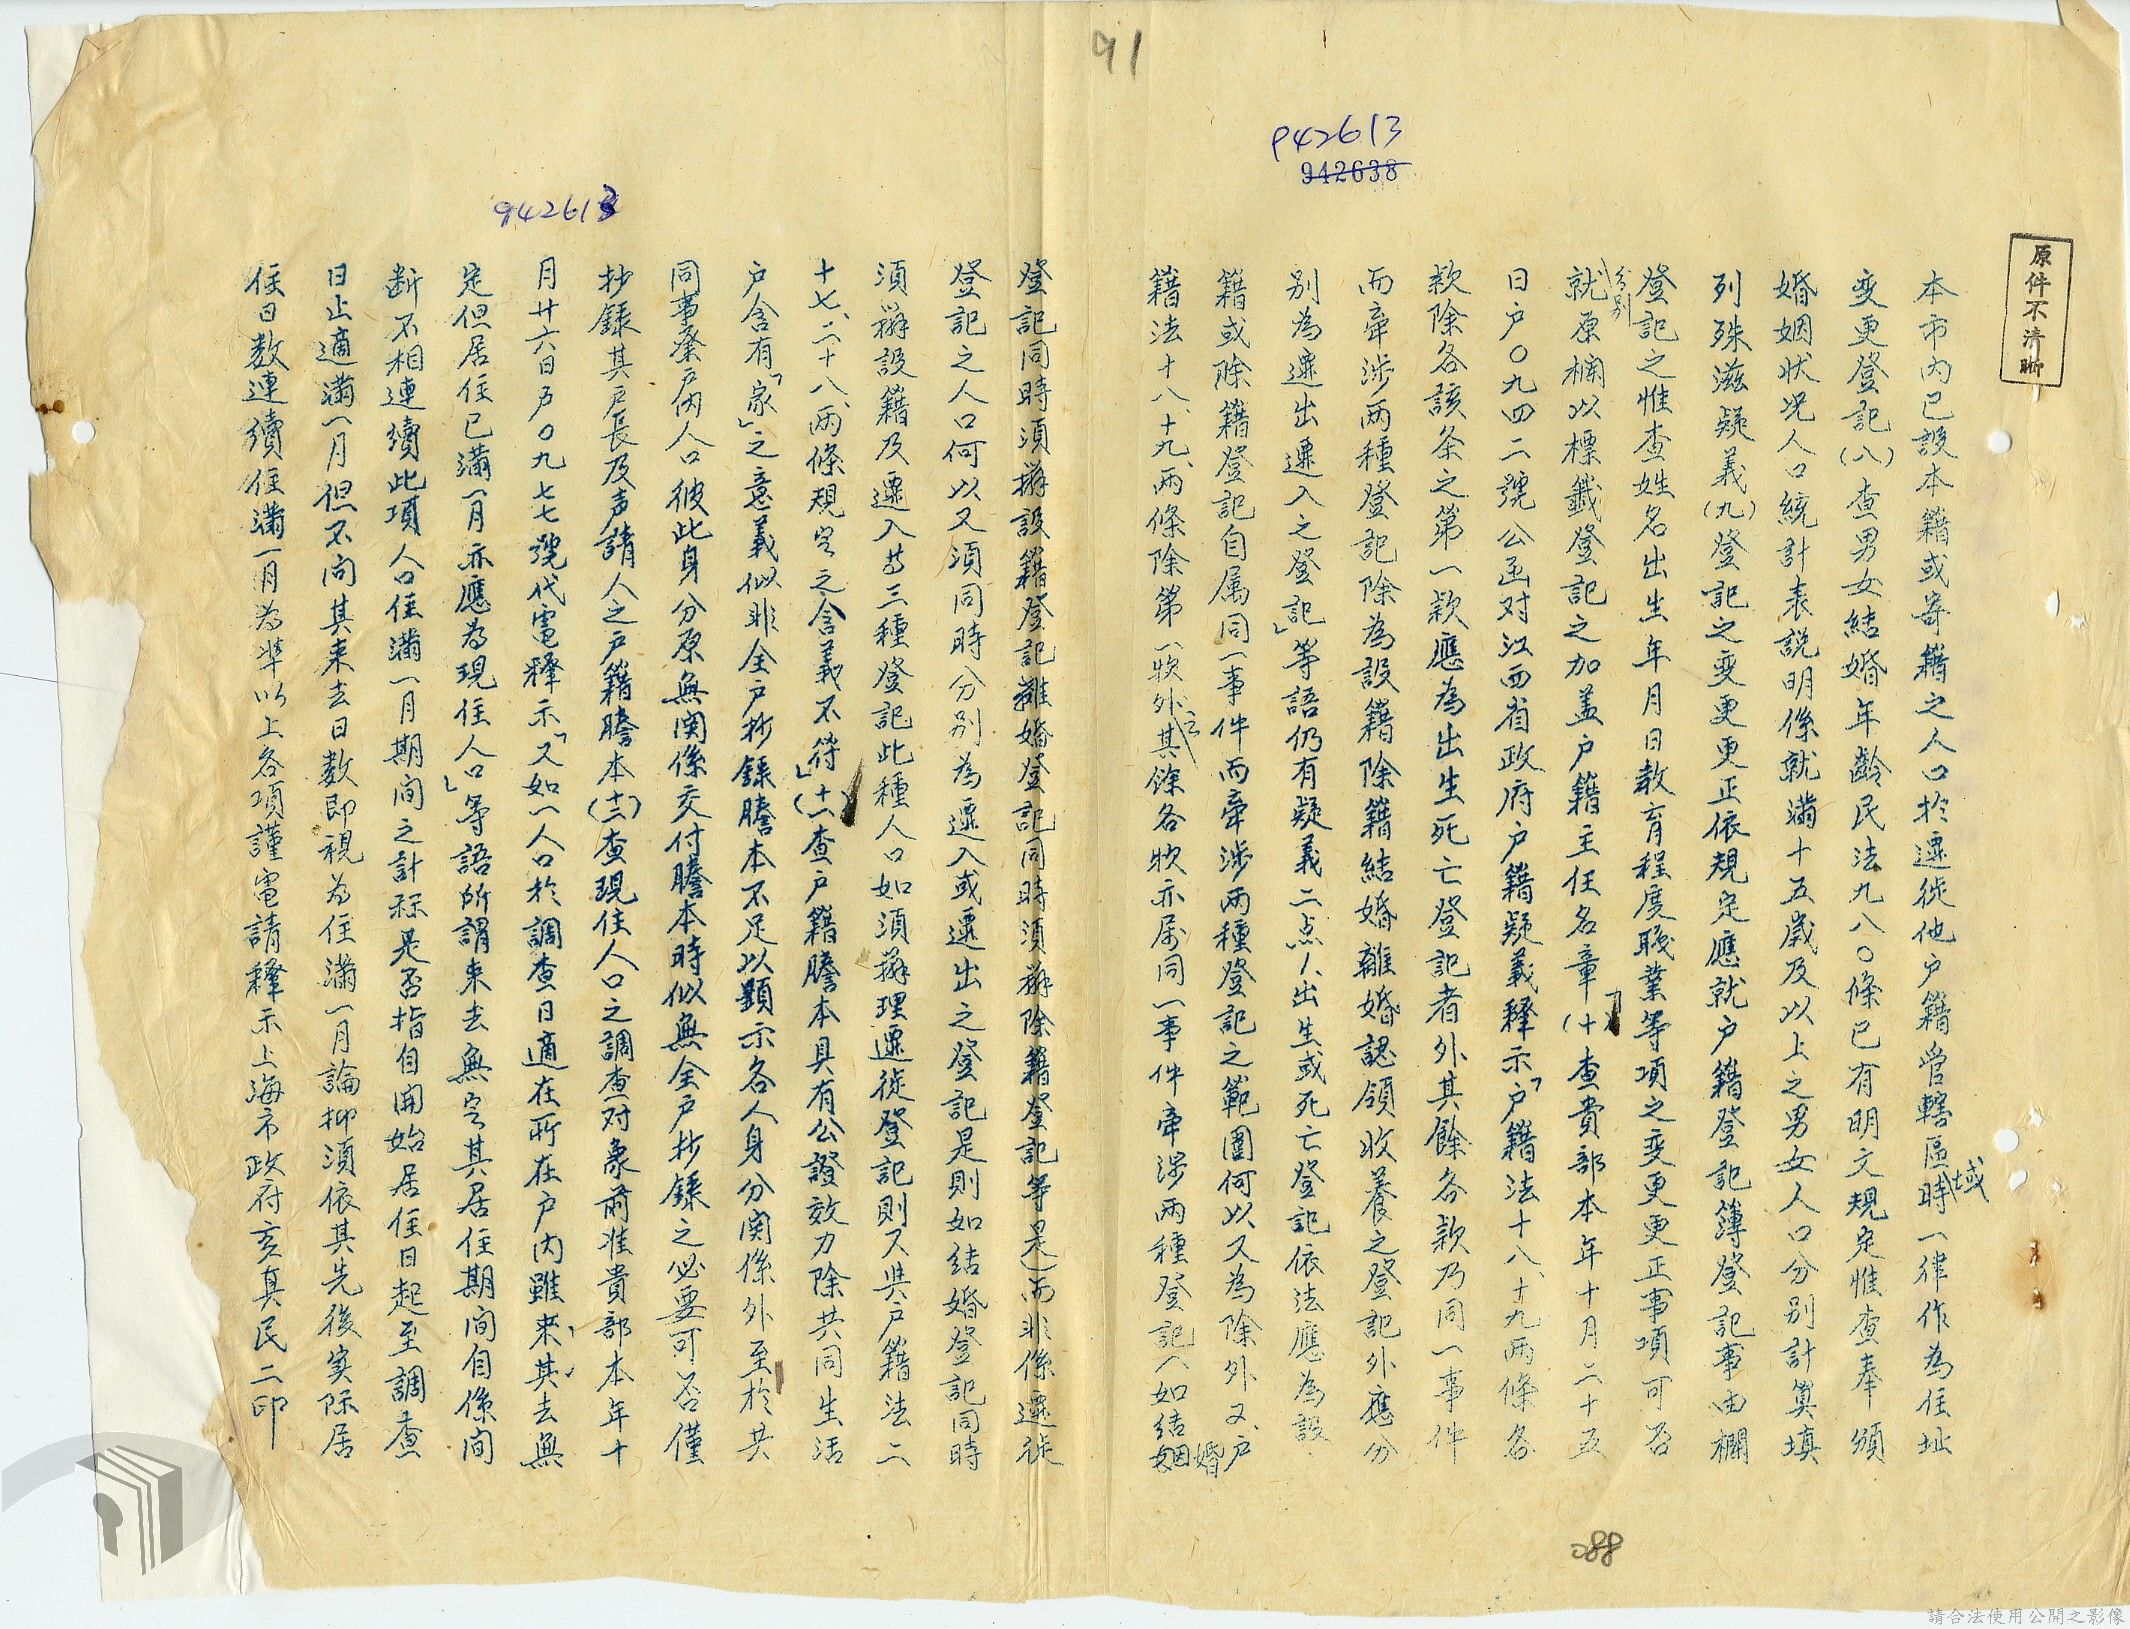 91
942613
942638
942613
原件不清晰
本市內已設本籍或寄籍之人口於遷徙他户籍管轄區域時一律作為住址
变更登記(八)查男女結婚年齡民法九八〇條已有明文規定惟查奉頒
婚姻狀况人口統計表說明係就滿十五歲及以上之男女人口分別計算填
列殊滋疑義(九)登記之变更更正依規定應就户籍登記簿登記事由欄
登記之惟查姓名出生年月日教育程度職業等項之变更更正事項可否
分別就原欄以標籤登記之加盖户籍主任名章(十)查貴部本年十月二十五
日户〇九四二號公函对江西省政府户籍疑義釋示「户籍法十八、十九兩條各
款除各該条之第一款應為出生死亡登記者外其餘各款乃同一事件
而牽涉两種登記除為設籍除籍結婚離婚認領收養之登記外應分
別為遷出遷入之登記」等語仍有疑義二点1、出生或死亡登記依法應為設
籍或除籍登記自属同一事件而牽涉两種登記之範圍何以又為除外2、户
籍法十八、十九、两條除第一欵外其餘各欵亦属同一事件牽涉两種登記(如結婚
登記同時須辦設籍登記離婚登記同時須辦除籍登記等是)而非係遷徙
登記之人口何以又須同時分別為遷入或遷出之登記是則如結婚登記同時
須辦設籍及遷入等三種登記此種人口如須辦理遷徙登記則又與户籍法二
十七、二十八、两條規定之含義不符」(十一)查户籍謄本具有公證效力除共同生活
户含有「家」之意義似非全户抄錄謄本不足以顯示各人身分関係外至於共
同事業户內人口彼此身分原無関係交付謄本時似無全户抄錄之必要可否僅
抄錄其户長及声請人之户籍謄本(十二)查現住人口之調查对象前准貴部本年十
月廿六日户〇九七七號代電釋示「又如一人口於調查日適在所在户內雖来其去無
定但居住已滿一月亦應為現住人口」等語所謂来去無定其居住期間自係間
断不相連續此項人口住滿一月期間之計称是否指自開始居住日起至調查
日止適滿一月但不问其来去日數即視為住滿一月論抑須依其先後实际居
住日數連續住滿一月為準以上各項謹電請釋示上海市政府亥真民二印
088
請合法使用公開之影像